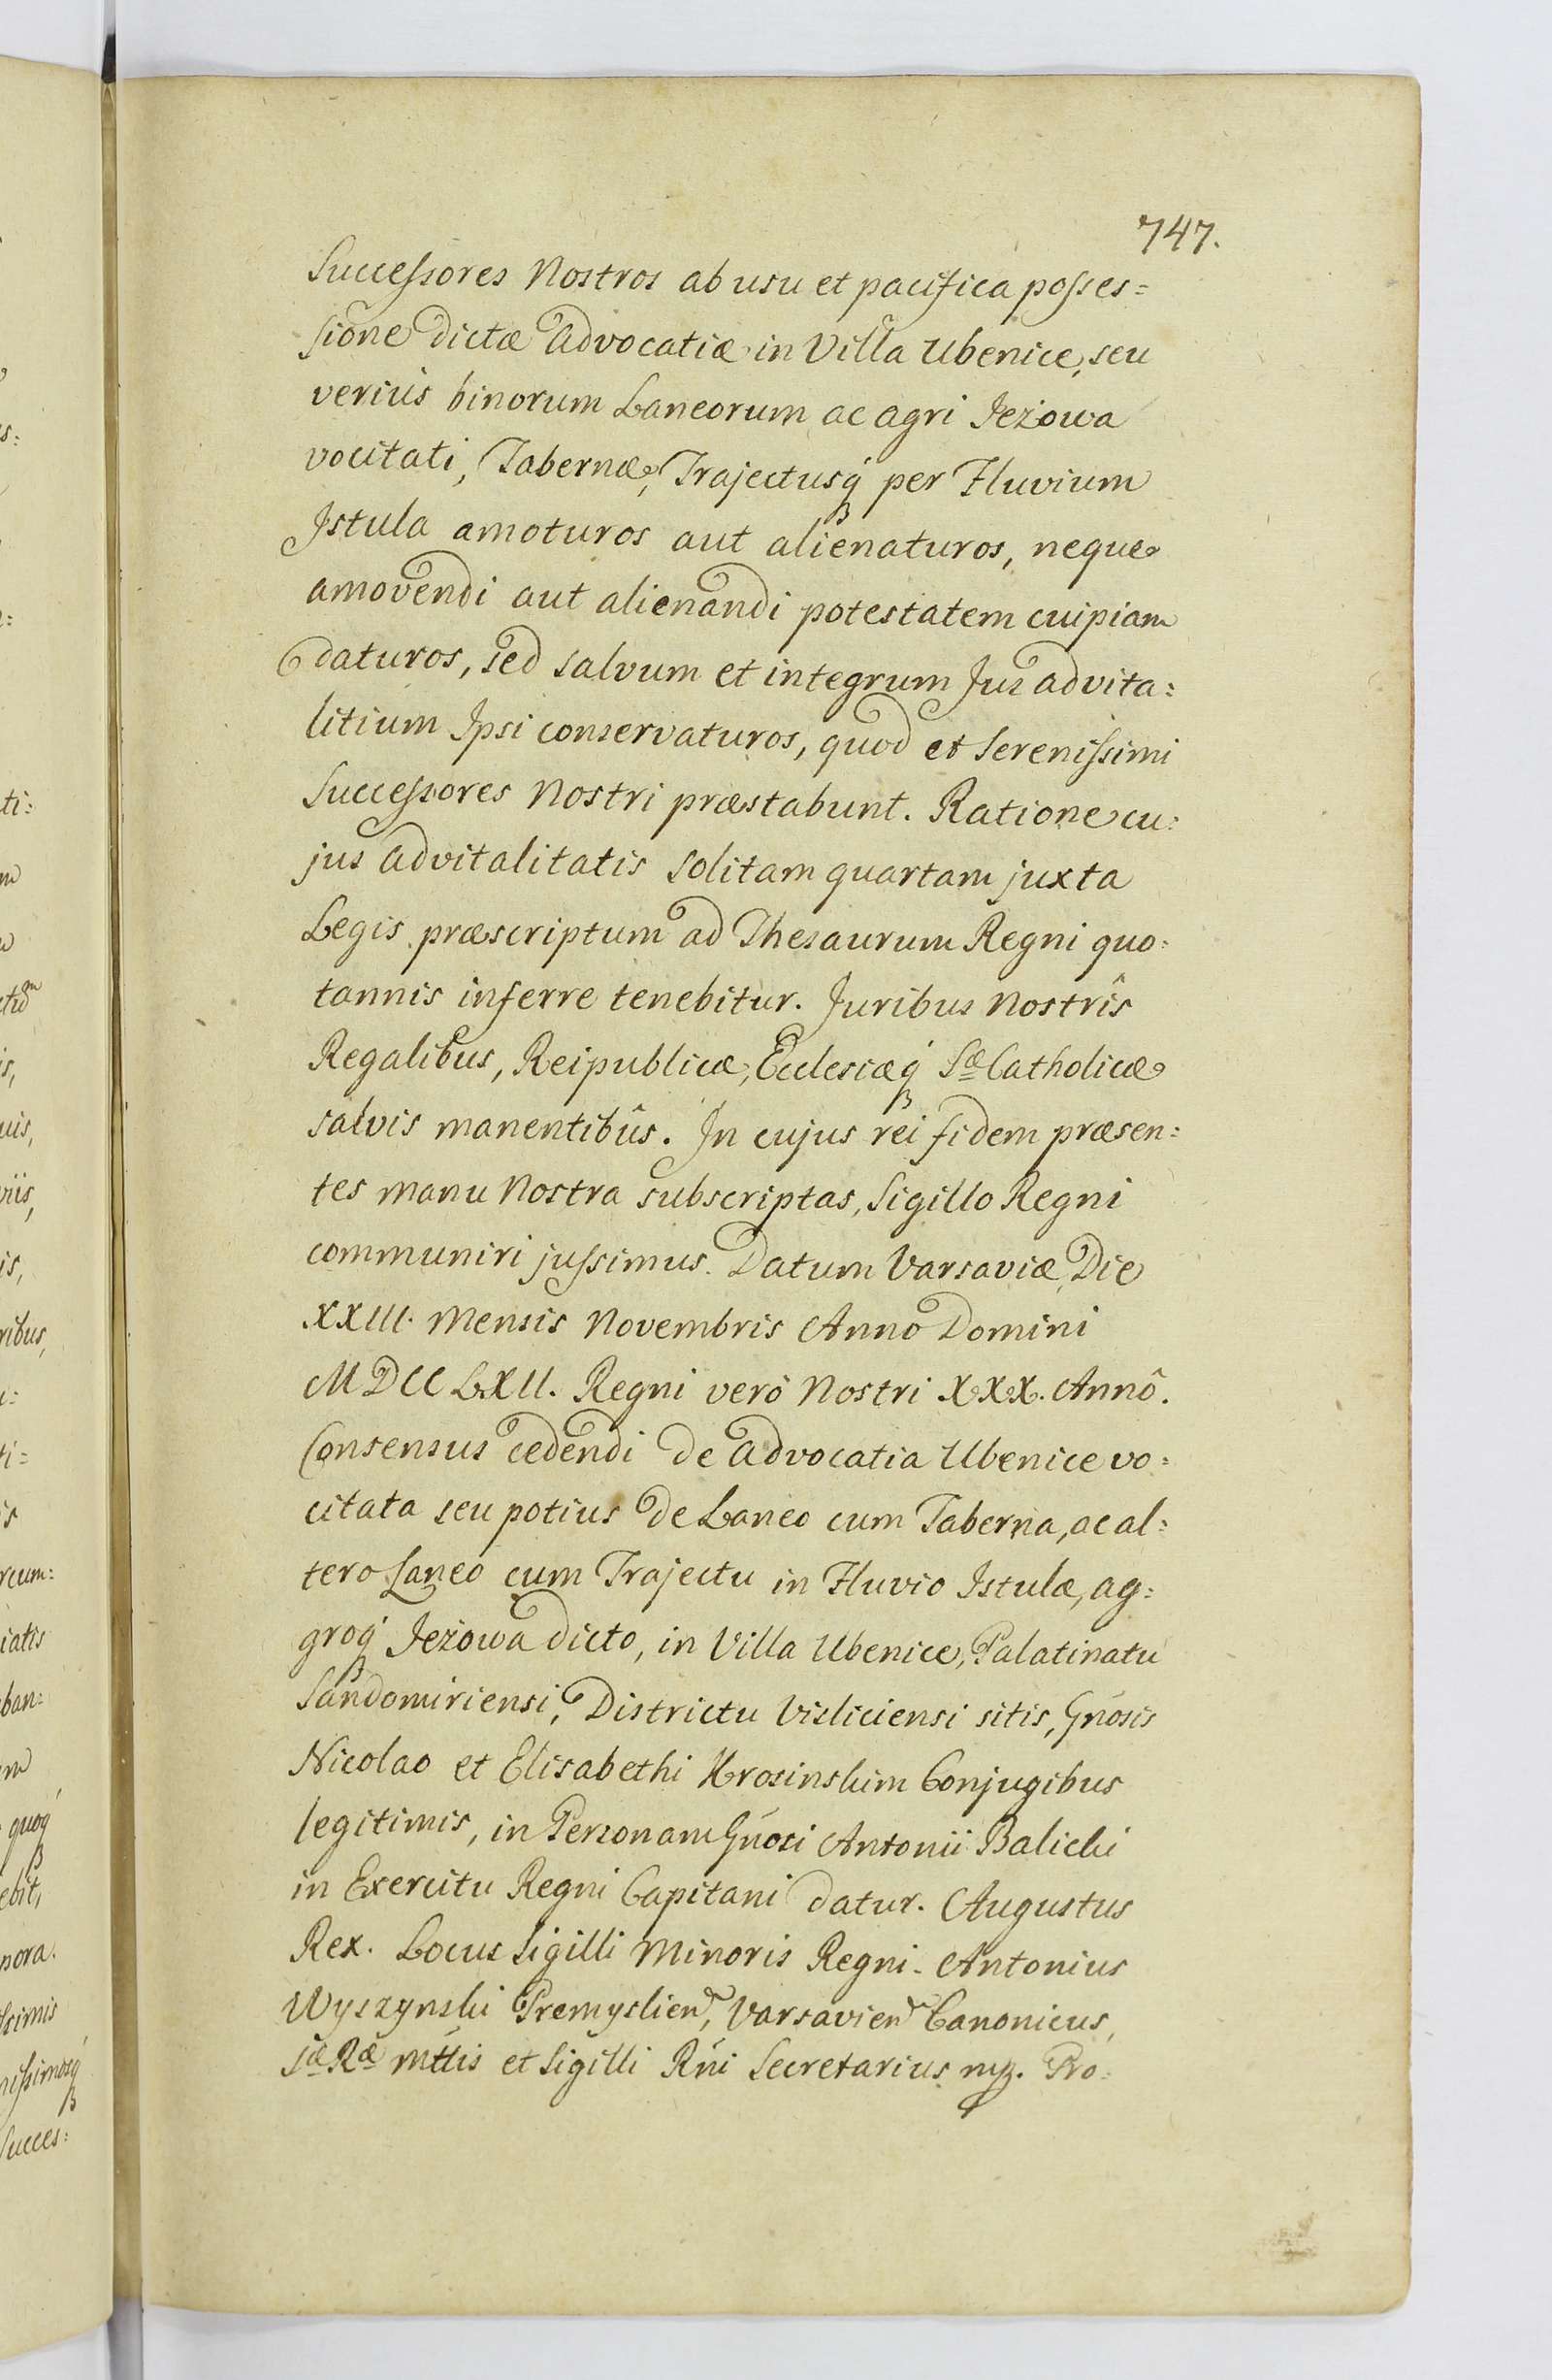 747.
Successores Nostros ab usu et pacifica posses=
sione dictæ Advocatiæ in Villa Ubenice, seu
verius binorum Laneorum ac agri Jeżowa
vocitati, Tabernæ, Trajectusq́ per Fluvium
Istula amoturos aut alienaturos, neque
amovendi aut alienandi potestatem cuipiam
daturos, sed salvum et integrum Jus advita=
litium Ipsi conservaturos, quod et Serenissimi
Successores Nostri præstabunt. Ratione cu=
jus advitalitatis solitam quartam juxta
Legis præscriptum ad Thesaurum Regni quo=
tannis inferre tenebitur. Juribus Nostrîs
Regalibus, Reipublicæ, Ecclesiæq́ Sæ Catholicæ
salvis manentibûs. In cujus rei fidem præsen=
tes Manu Nostra subscriptas, Sigillo Regni
communiri jussimus. Datum Varsaviæ Die
XXIII. Mensis Novembris Anno Domini
MDCCLXII. Regni verò Nostri XXX. Annô.
Consensus cedendi de Advocatia Ubenice vo=
citata seu potius de Laneo cum Taberna, ac al=
tero Laneo cum Trajectu in Fluvio Istulæ, ag=
groq́ Jeżowa dicto, in Villa Ubenice, Palatinatu
Sandomiriensi, Districtu Visliciensi sitis, Gńosis
Nicolao et Elisabethi Krosinskim Conjugibus
legitimis, in Personam Gńosi Antonii Balicki
in Exercitu Regni Capitani datur. Augustus
Rex. Locus Sigilli Minoris Regni. Antonius
Wyszynski Premyslien, Varsavien Canonicus,
Sæ Ræ Mttis et Sigilli Rńi Secretarius mp. Pro=